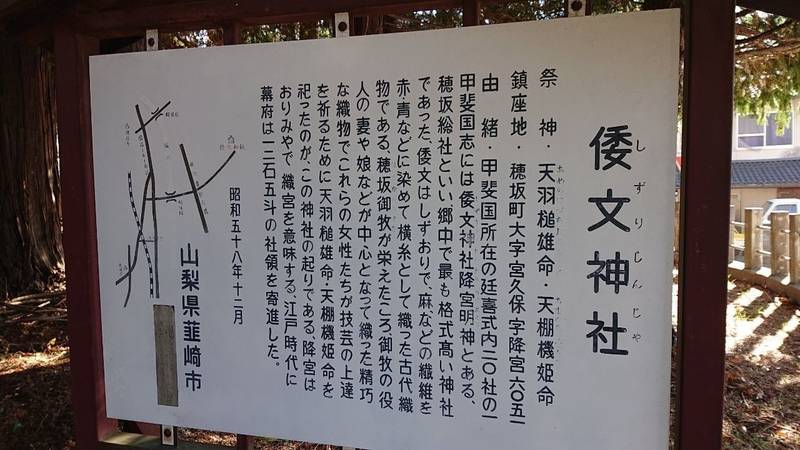 倭文神社
しずりじんじゃ
祭神・天羽槌雄命・天棚機姫命
鎮座地・穂坂町大字宮久保字降宮六〇五一
由緒・甲斐国所在の延喜式内二〇社の一
甲斐国志には倭文神社降宮明神とある、
穂坂総社といい郷中で最も格式高い神社
であった、倭文はしずおりで、麻などの繊維を
赤青などに染めて横糸として織った古代織
物である、穂坂御牧が栄えたころ御牧の役
人の妻や娘などが中心となって織った精巧
な織物でこれらの女性たちが技芸の上達
を祈るために天羽槌雄命・天棚機姫命を
祀ったのが、この神社の起りである、降宮は
おりみやで織宮を意味する、江戸時代に
幕府は一二石五斗の社領を寄進した。
昭和五十八年十二月
山梨県韮崎市